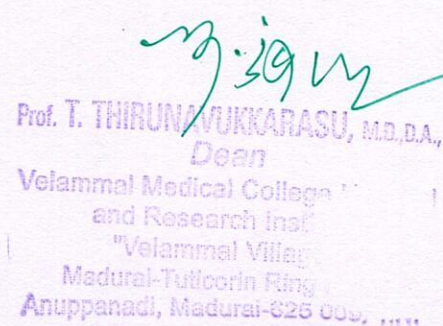 Prof. T. THIRUNAVUKKARASU, M.D.,D.A.,
Dean
Velammal Medical College
and Research Inst
"Velammal Villag
Madurai-Tuticorin Ring
Anuppanadi, Madurai-625 009,